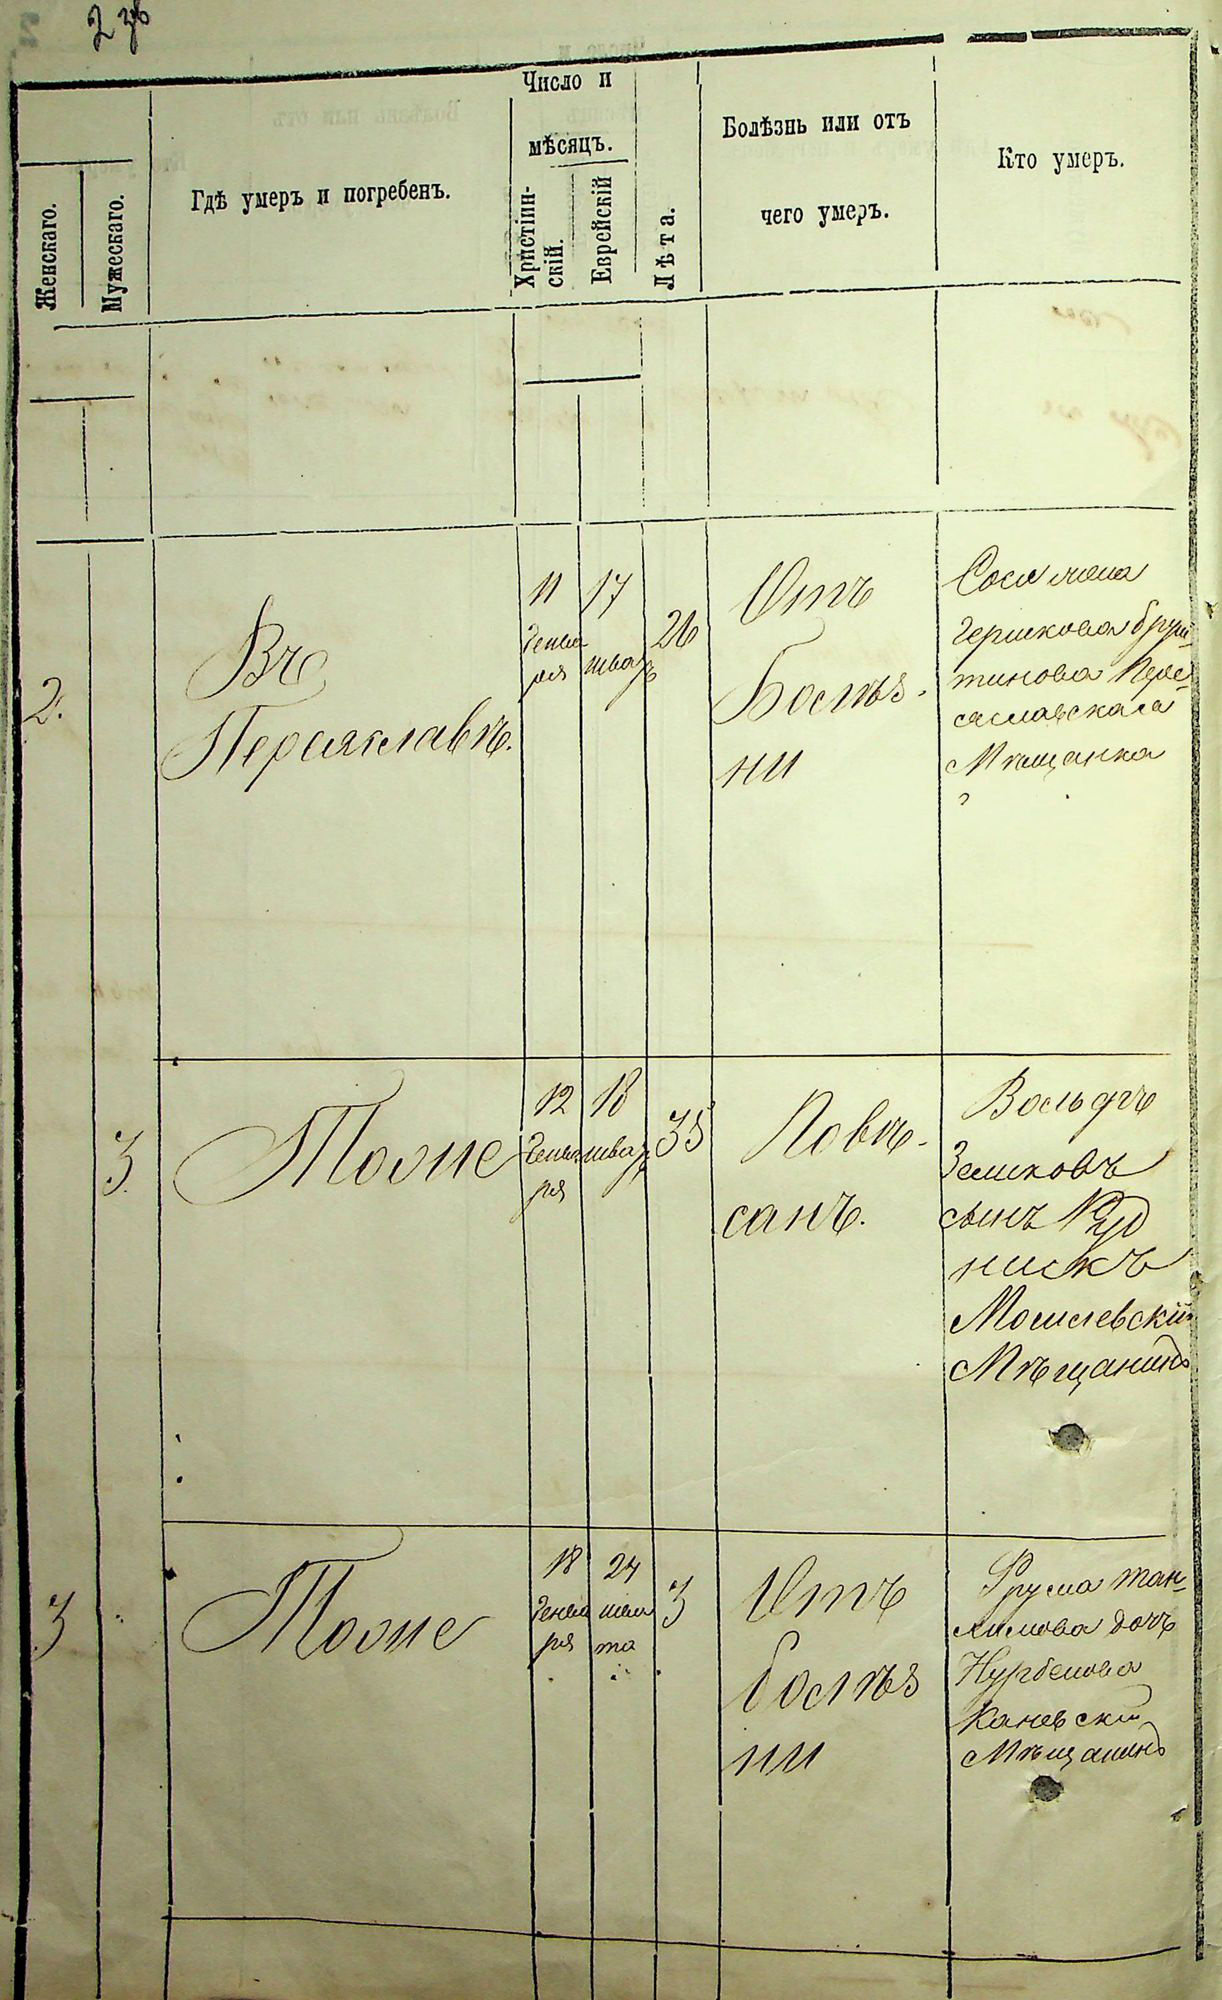 2 об
Женскаго.
Мужескаго.
Гдѣ умеръ и погребенъ.
Число и
мѣсяцъ.
Христіян-
скій.
Еврейскій
Лѣта.
Болѣзнь или отъ
чего умеръ.
Кто умеръ.
2.
Въ
Переяславѣ.
11
Генва
ря
17
шватъ
26
Отъ
Болѣз-
ни
Гершкова
тинова Пере
яславская
Мѣщанка
3
Тоже
12
Генва
ря
18
шватъ
35
санъ.
Вольфъ
Зеликовъ
сынъ Руд
никъ
Могилевскій
Мѣщанинъ
3
Тоже
18
Генва
ря
24
шва
та
3
Отъ
болѣз
ни
Фрума Тан-
химова дочь
Каневскій
Мѣщанинъ